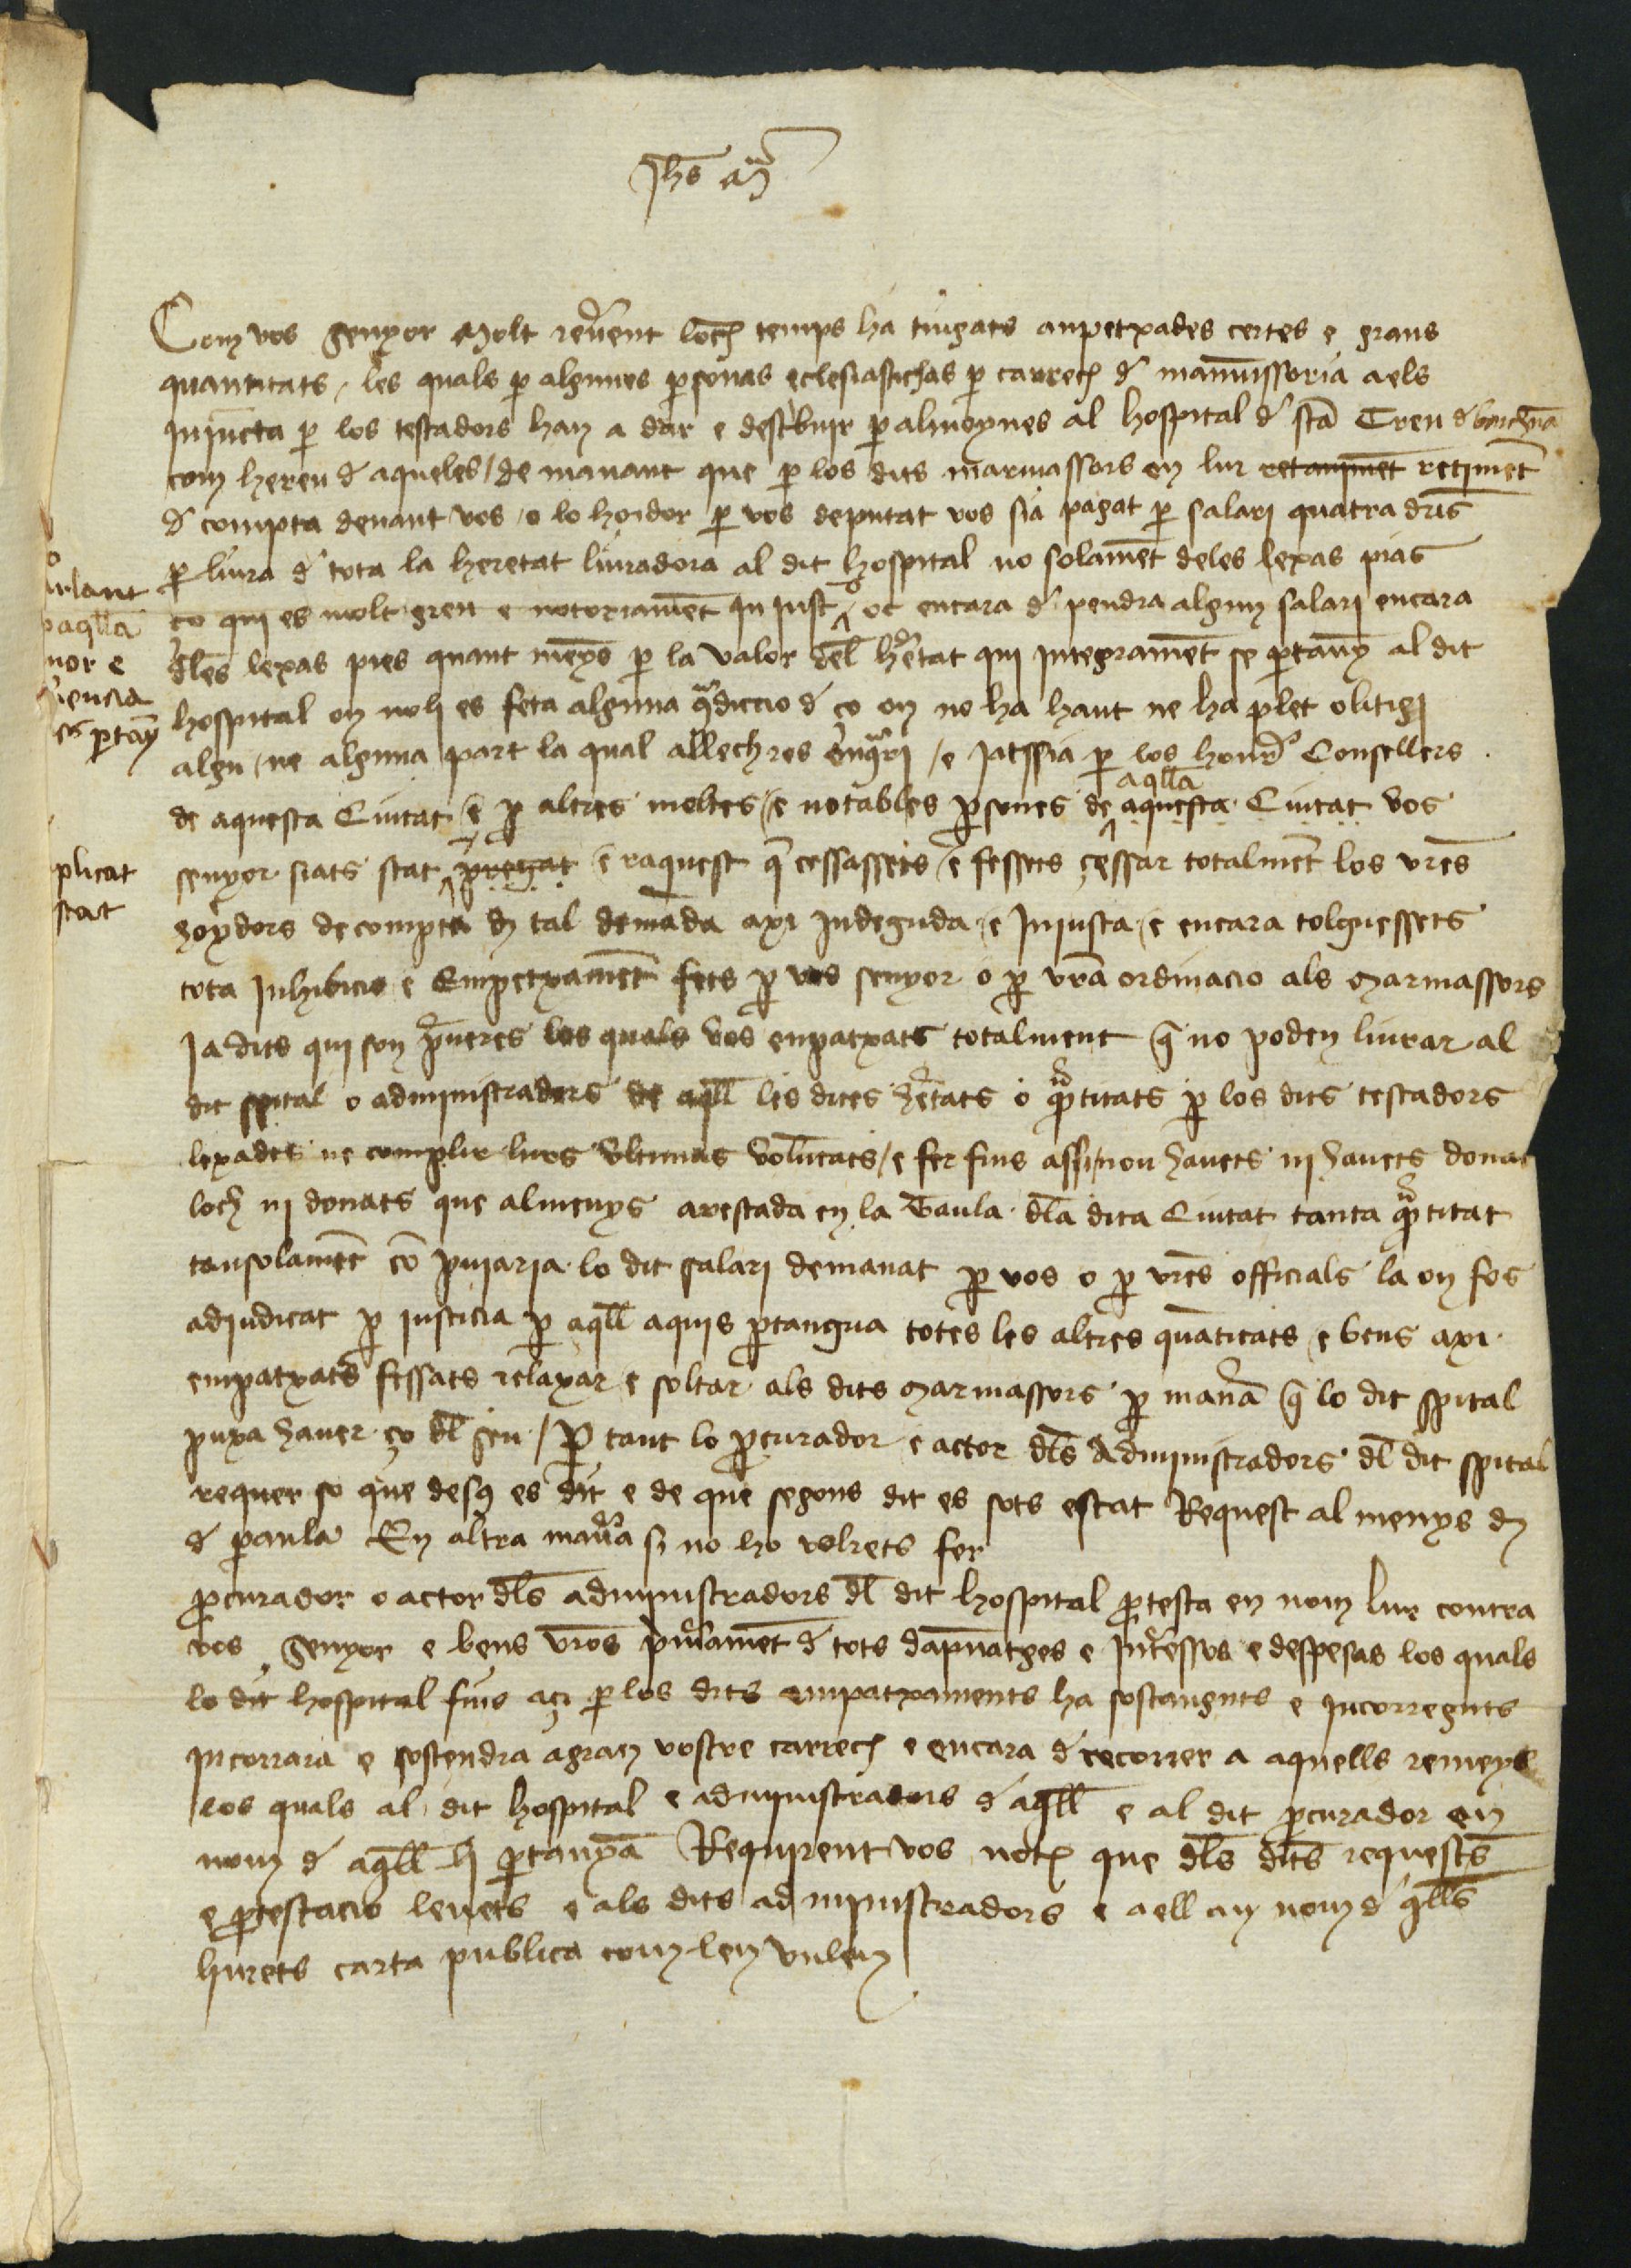 Jhs am
Com vos senyor Molt reverent loch temps ha tingats anpetxades certes e grans
quantitats / les quals p algunes psonas eclesiastichas p carrech d manussoria aels
injuncta p los testadors han a dar e destribuir p almoynes al hospital d sta Creu d barchna
com hereu d aqueles / de manant que p los dits marmassors en lur retaniment retiment
d compta denant vos o lo hoidor p vos deputat vos sia pagat p salari quatra drs
p liura d tota la heretat liuradora al dit hospital no solament deles lexas pias
ço qui es molt greu e notoriament in just / oc encara d pendra algun salari encara
dles lexas pies quant meyns p la valor del hretat qui integrament se ptany al dit
hospital on noli es feta alguna qdiccio d ço on no ha haut ne ha plet o litigi
algu / ne alguna part la qual allech res / e jatssia p los honr Consellers
de aquesta Ciutat / e p altres moltes / e notables psones de aquesta Ciutat vos
aqlla
senyor siats stat pregat e raquest q cessassets / e fessets cessar totalment los vres
hoydors de compta dn tal demada axi indeguda / e Injusta / e encara tolguessets
tota inhibicio e Empetxament fets p vos senyor o p vra ordinacio als marmassors
Ja dits qui son pveres los quals vos enpatxats totalment q no poden liurar al
dit spital o administradors de aqll les dites hretats o qtitats p los dits testadors
lexades ne complir lurs ultimas voluntats / e fer fins assi / non havets ni havets donat
loch ni donats que almenys arestada en la Taula dla dita Ciutat tanta qtitat
tansolament co pujaria lo dit salari demanat p vos o p vres officials la on fos
adjudicat p justicia p aqll aquis ptangua totes les altres quatitats e bens axi
empatxats fessats relaxar e soltar als dits marmassors p mana q lo dit spital
puxa haver ço dl seu / P tant lo pcurador e actor dls Administradors dl dit spital
requer so que desus es dit e de que segons dit es sots estat Request al menys dn
d paula En altra manra si no ho volrets fer
pcurador o actor dls administradors dl dit hospital ptesta en nom lur contra
vos senyor e bens vros privament d tots dapnatges e intressos e despesas los quals
lo dit hospital fins aci p los dits empatxaments ha sostanguts e incorreguts
incorrara e sostendra agran vostre carrech e encara d recorrer a aquells remeys
los quals al dit hospital e administradors d aqll e al dit pcurador en
nom d aqll li ptanya Requirent vos noth que dls dits requests
e ptestacio levets e als dits administradors e aell en nom d qlls
liurets carta publica com len vulen
plicat
stat